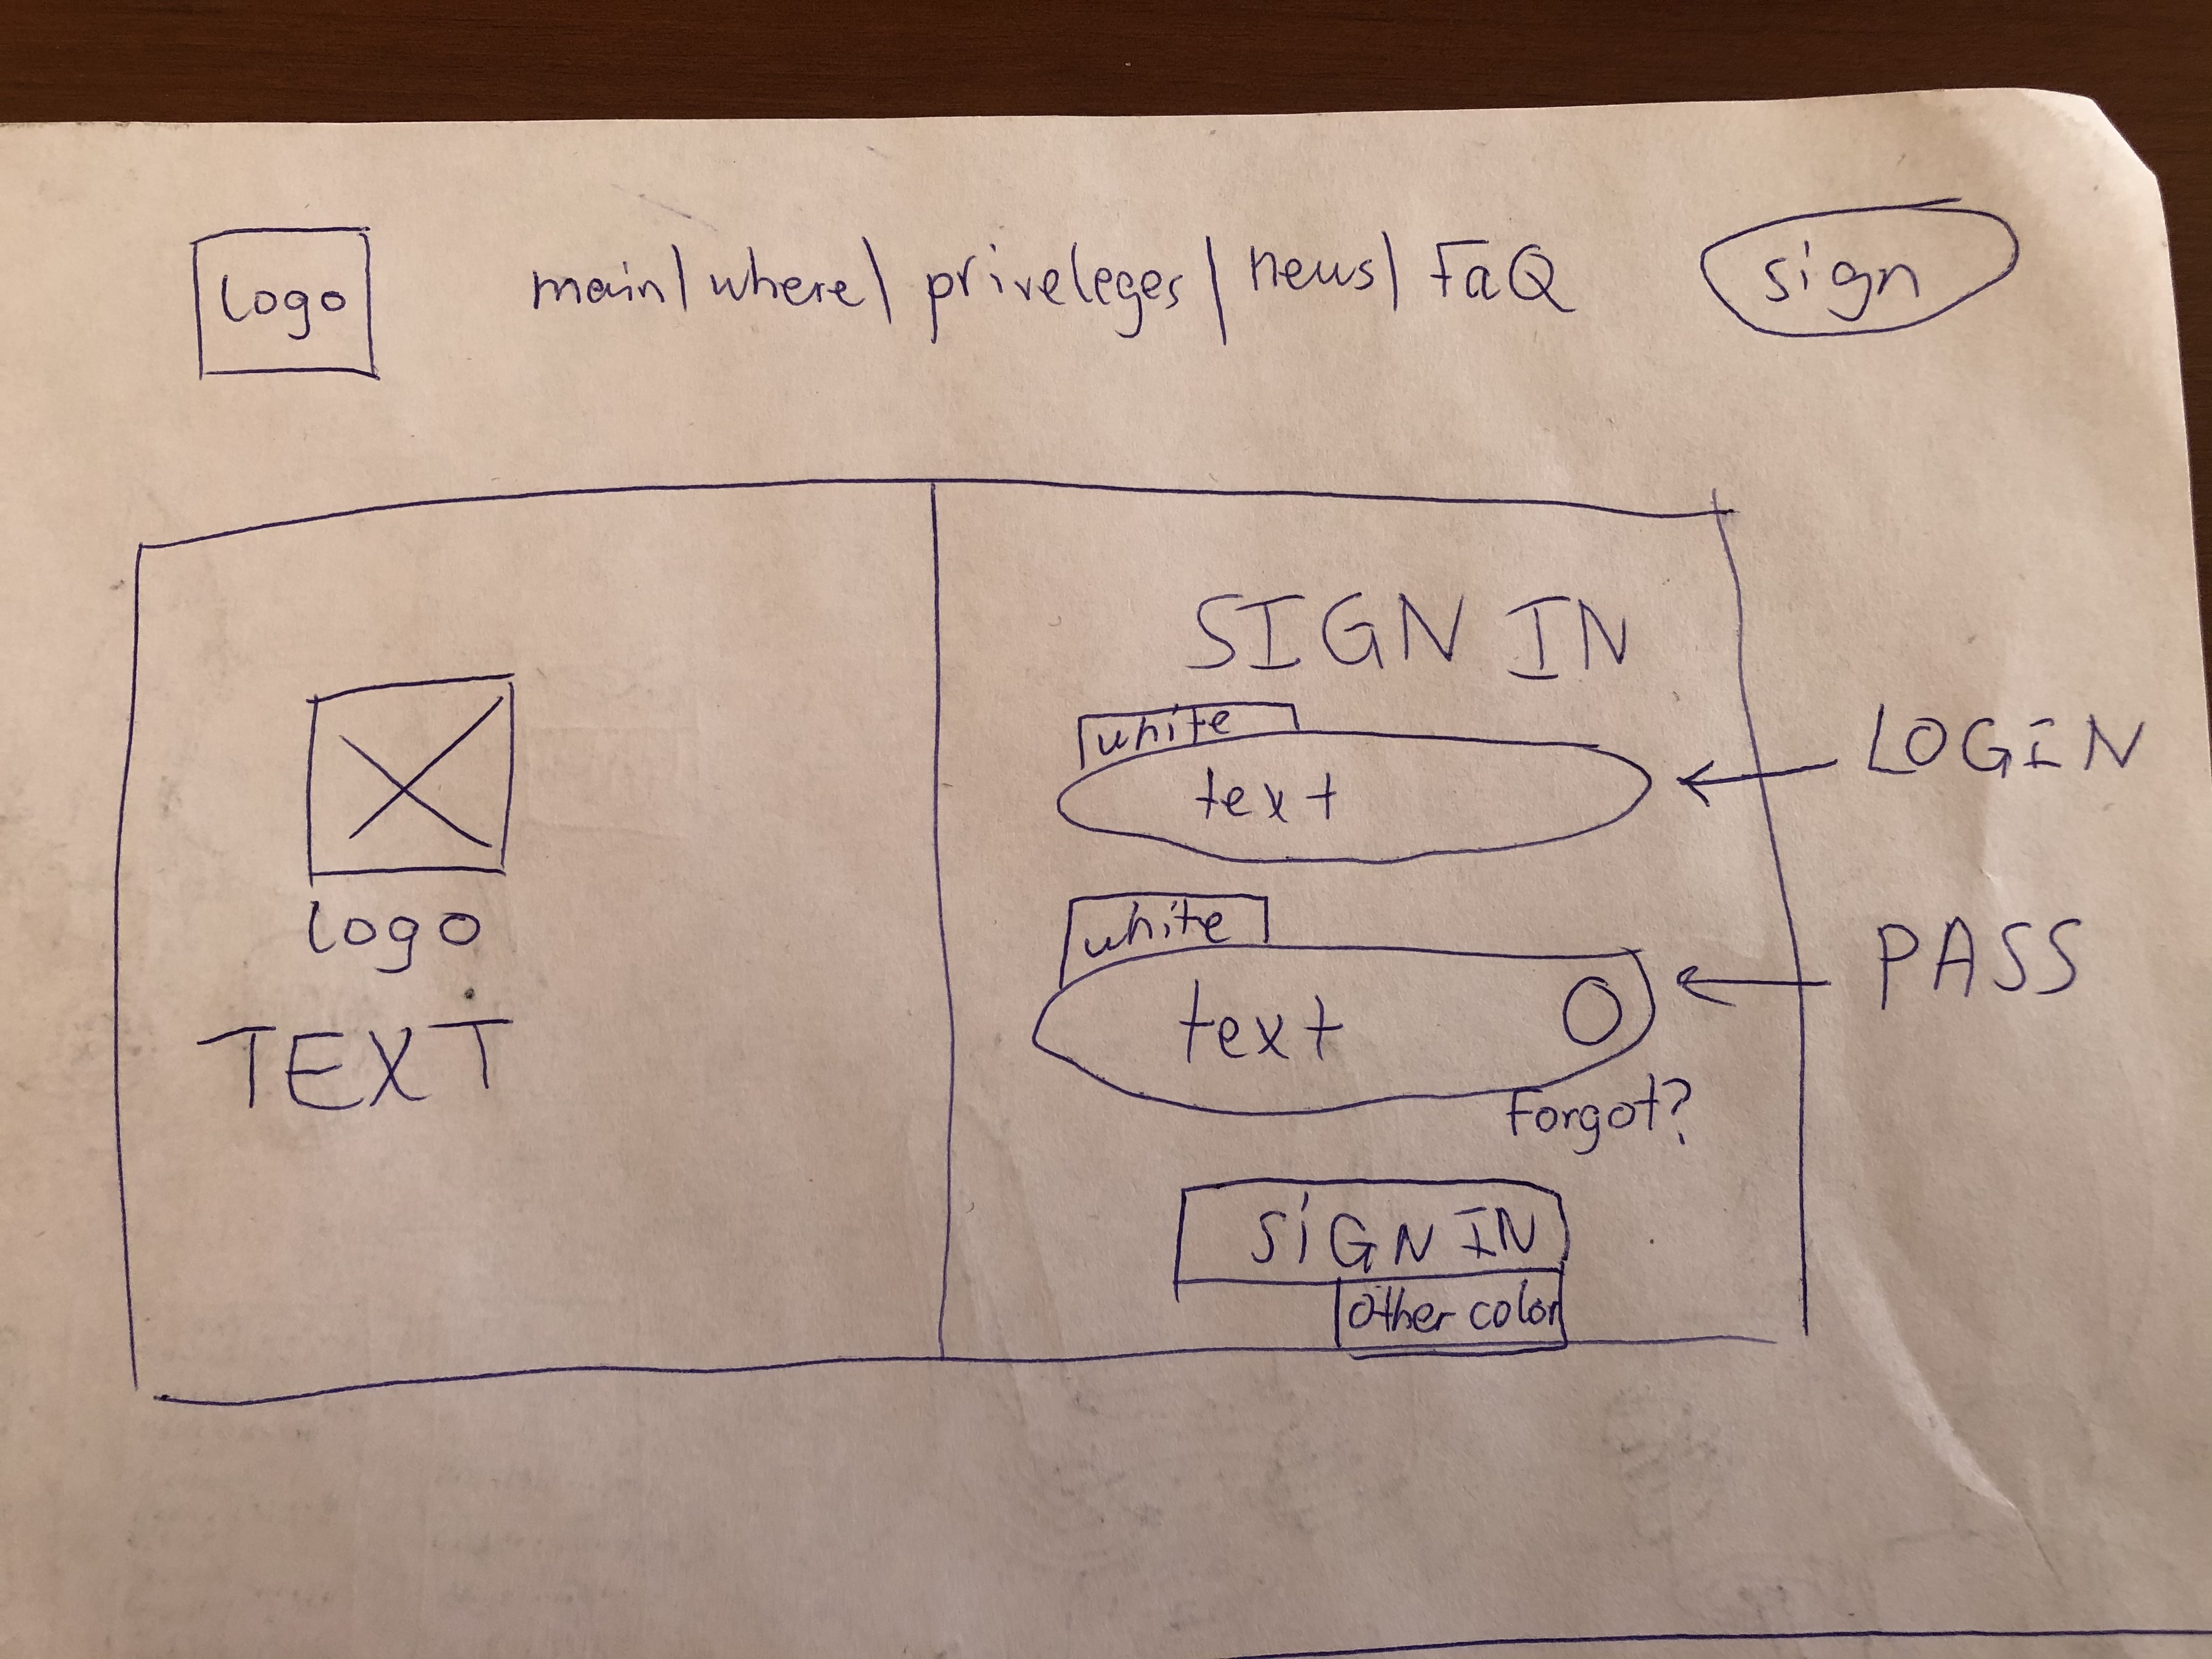 logo
main | where | priveleges | news | FaQ
sign
logo
TEXT
SIGN IN
white
text
LOGIN
white
text
PASS
Forgot?
SiGN IN
Other color